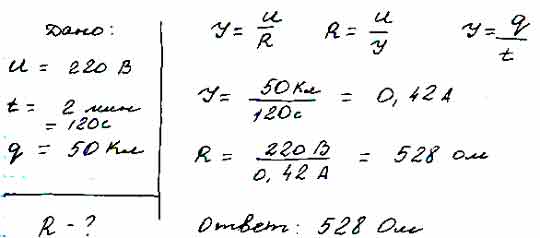 Дано:
U = 220 В
t = 2 мин
= 120с
q = 50 Кл
R - ?
У = U/R R = U/У У = q/t
У = 50 Кл/120с = 0,42 А
R = 220 В/0,42 А = 528 ом
Ответ: 528 Ом